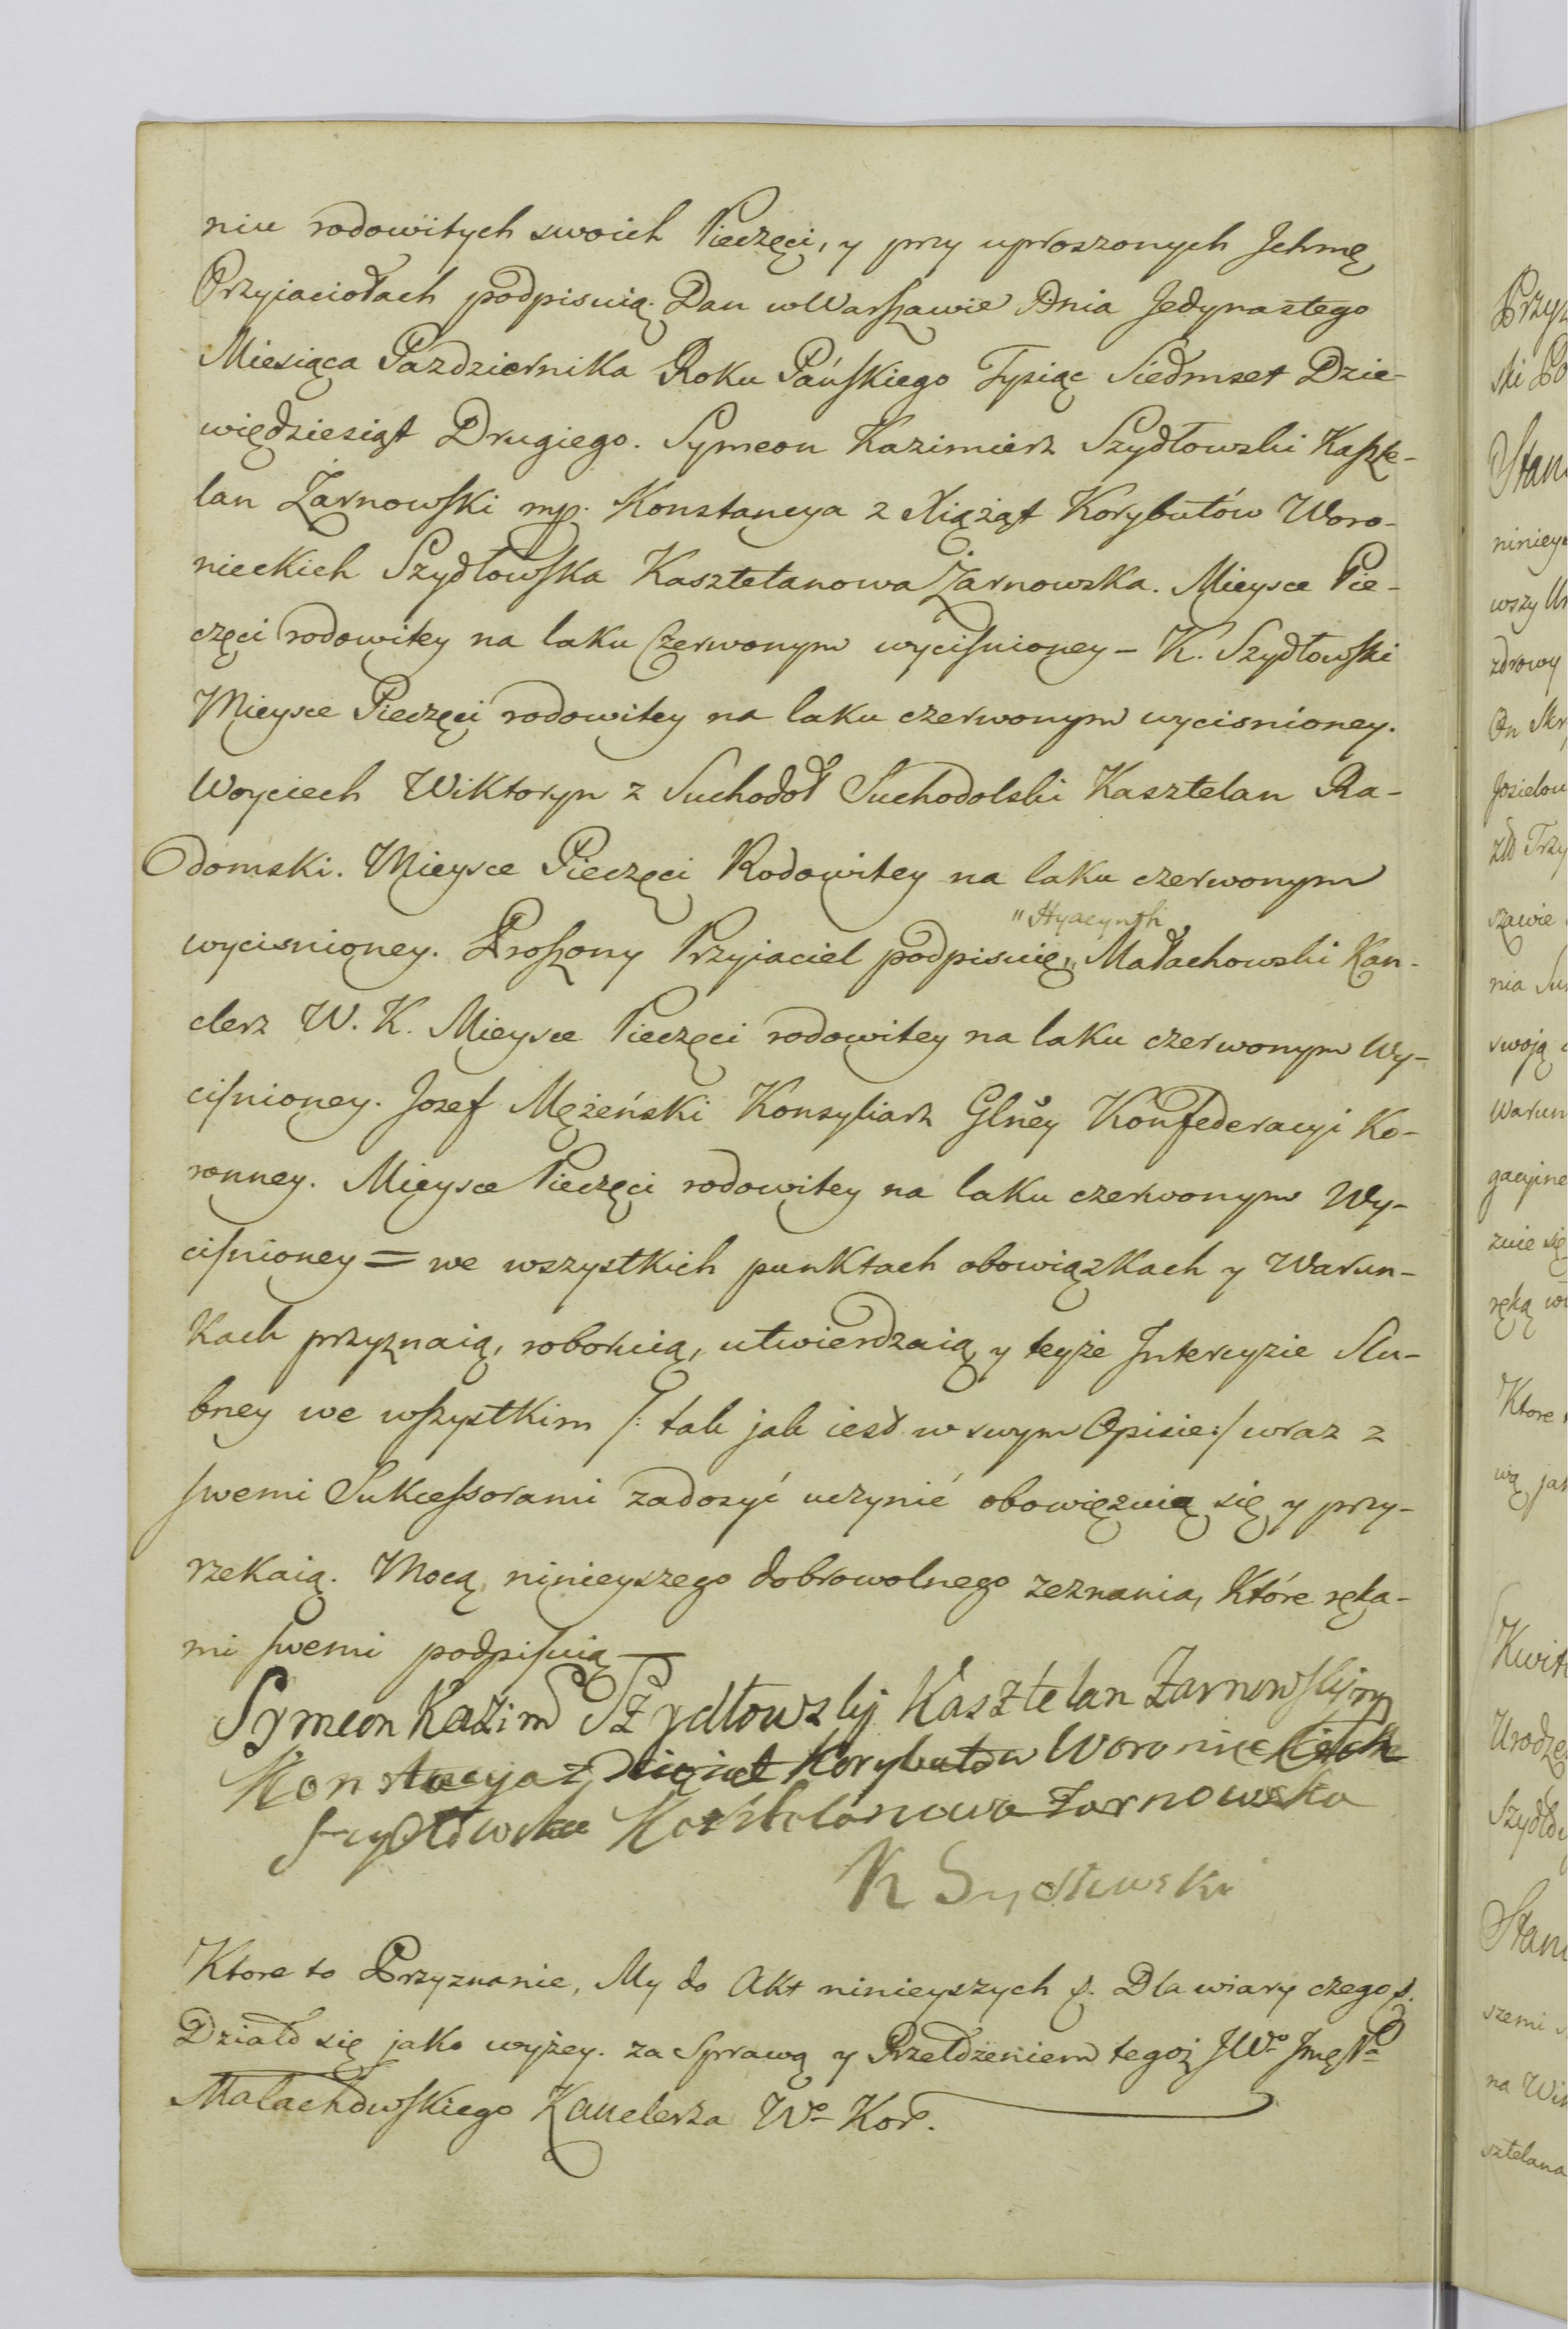 niu rodowitych swoich Pieczęci, y przy uproszonych Ichmę
Przyiaciołach podpisuią. Dan w Warszawie Dnia Jedynastego
Miesiąca Pazdziernika Roku Pańskiego Tysiąc Siedmset Dzie-
więdziesiąt Drugiego. Symeon Kazimierz Szydłowski Kaszte-
lan Żarnowski mp. Konstancya z Xiążąt Korybutów Woro-
nieckich Szydłowska Kasztelanowa Żarnowska. Mieysce Pie-
częci rodowitey na laku Czerwonym wycisnioney – K. Szydłowski
Mieysce Pieczęci rodowitey na laku czerwonym wycisnioney.
Woyciech Wiktoryn z Suchodoł Suchodolski Kasztelan Ra-
domski. Mieysce Pieczęci Rodowitey na laku czerwonym
wycisnioney. Proszony Przyiaciel podpisuię „ "Hyacynth Małachowski Kan-
clerz W. K. Mieysce Pieczęci rodowitey na laku czerwonym Wy-
cisnioney. Jozef Mężeński Konsyliarz Glney Konfederacyi Ko-
ronney. Mieysce Pieczęci rodowitey na laku czerwonym Wy-
cisnioney = we wszystkich punktach obowiązkach y Warun-
kach przyznaią, roboruią, utwierdzaią y teyże Intercyzie Slu-
bney we wszystkim /: tak jak iest w swym Opisie :/ wraz z
swemi Sukcessorami zadosyć uczynić obowięzuią się y przy-
rzekaią. Mocą ninieyszego dobrowolnego zeznania, Które ręka-
mi swemi podpisuią —
Symeon Kazim Szydłowskij Kasztelan Żarnowskij mp
Konstancyia z Xiążąt Korybutów Woronieckich
Szydłowska Kasztelanowa Żarnowska
K Szydłowski
Ktore to Przyznanie, My do Akt ninieyszych p. Dla wiary czego p.
Działo się jako wyżey. za Sprawą y Przełożeniem tegoż JWo Jmę Pa
Małachowskiego Kanclerza Wo Kor.
Stan
wszy
zdrowy
szawie
swoją
Ktore